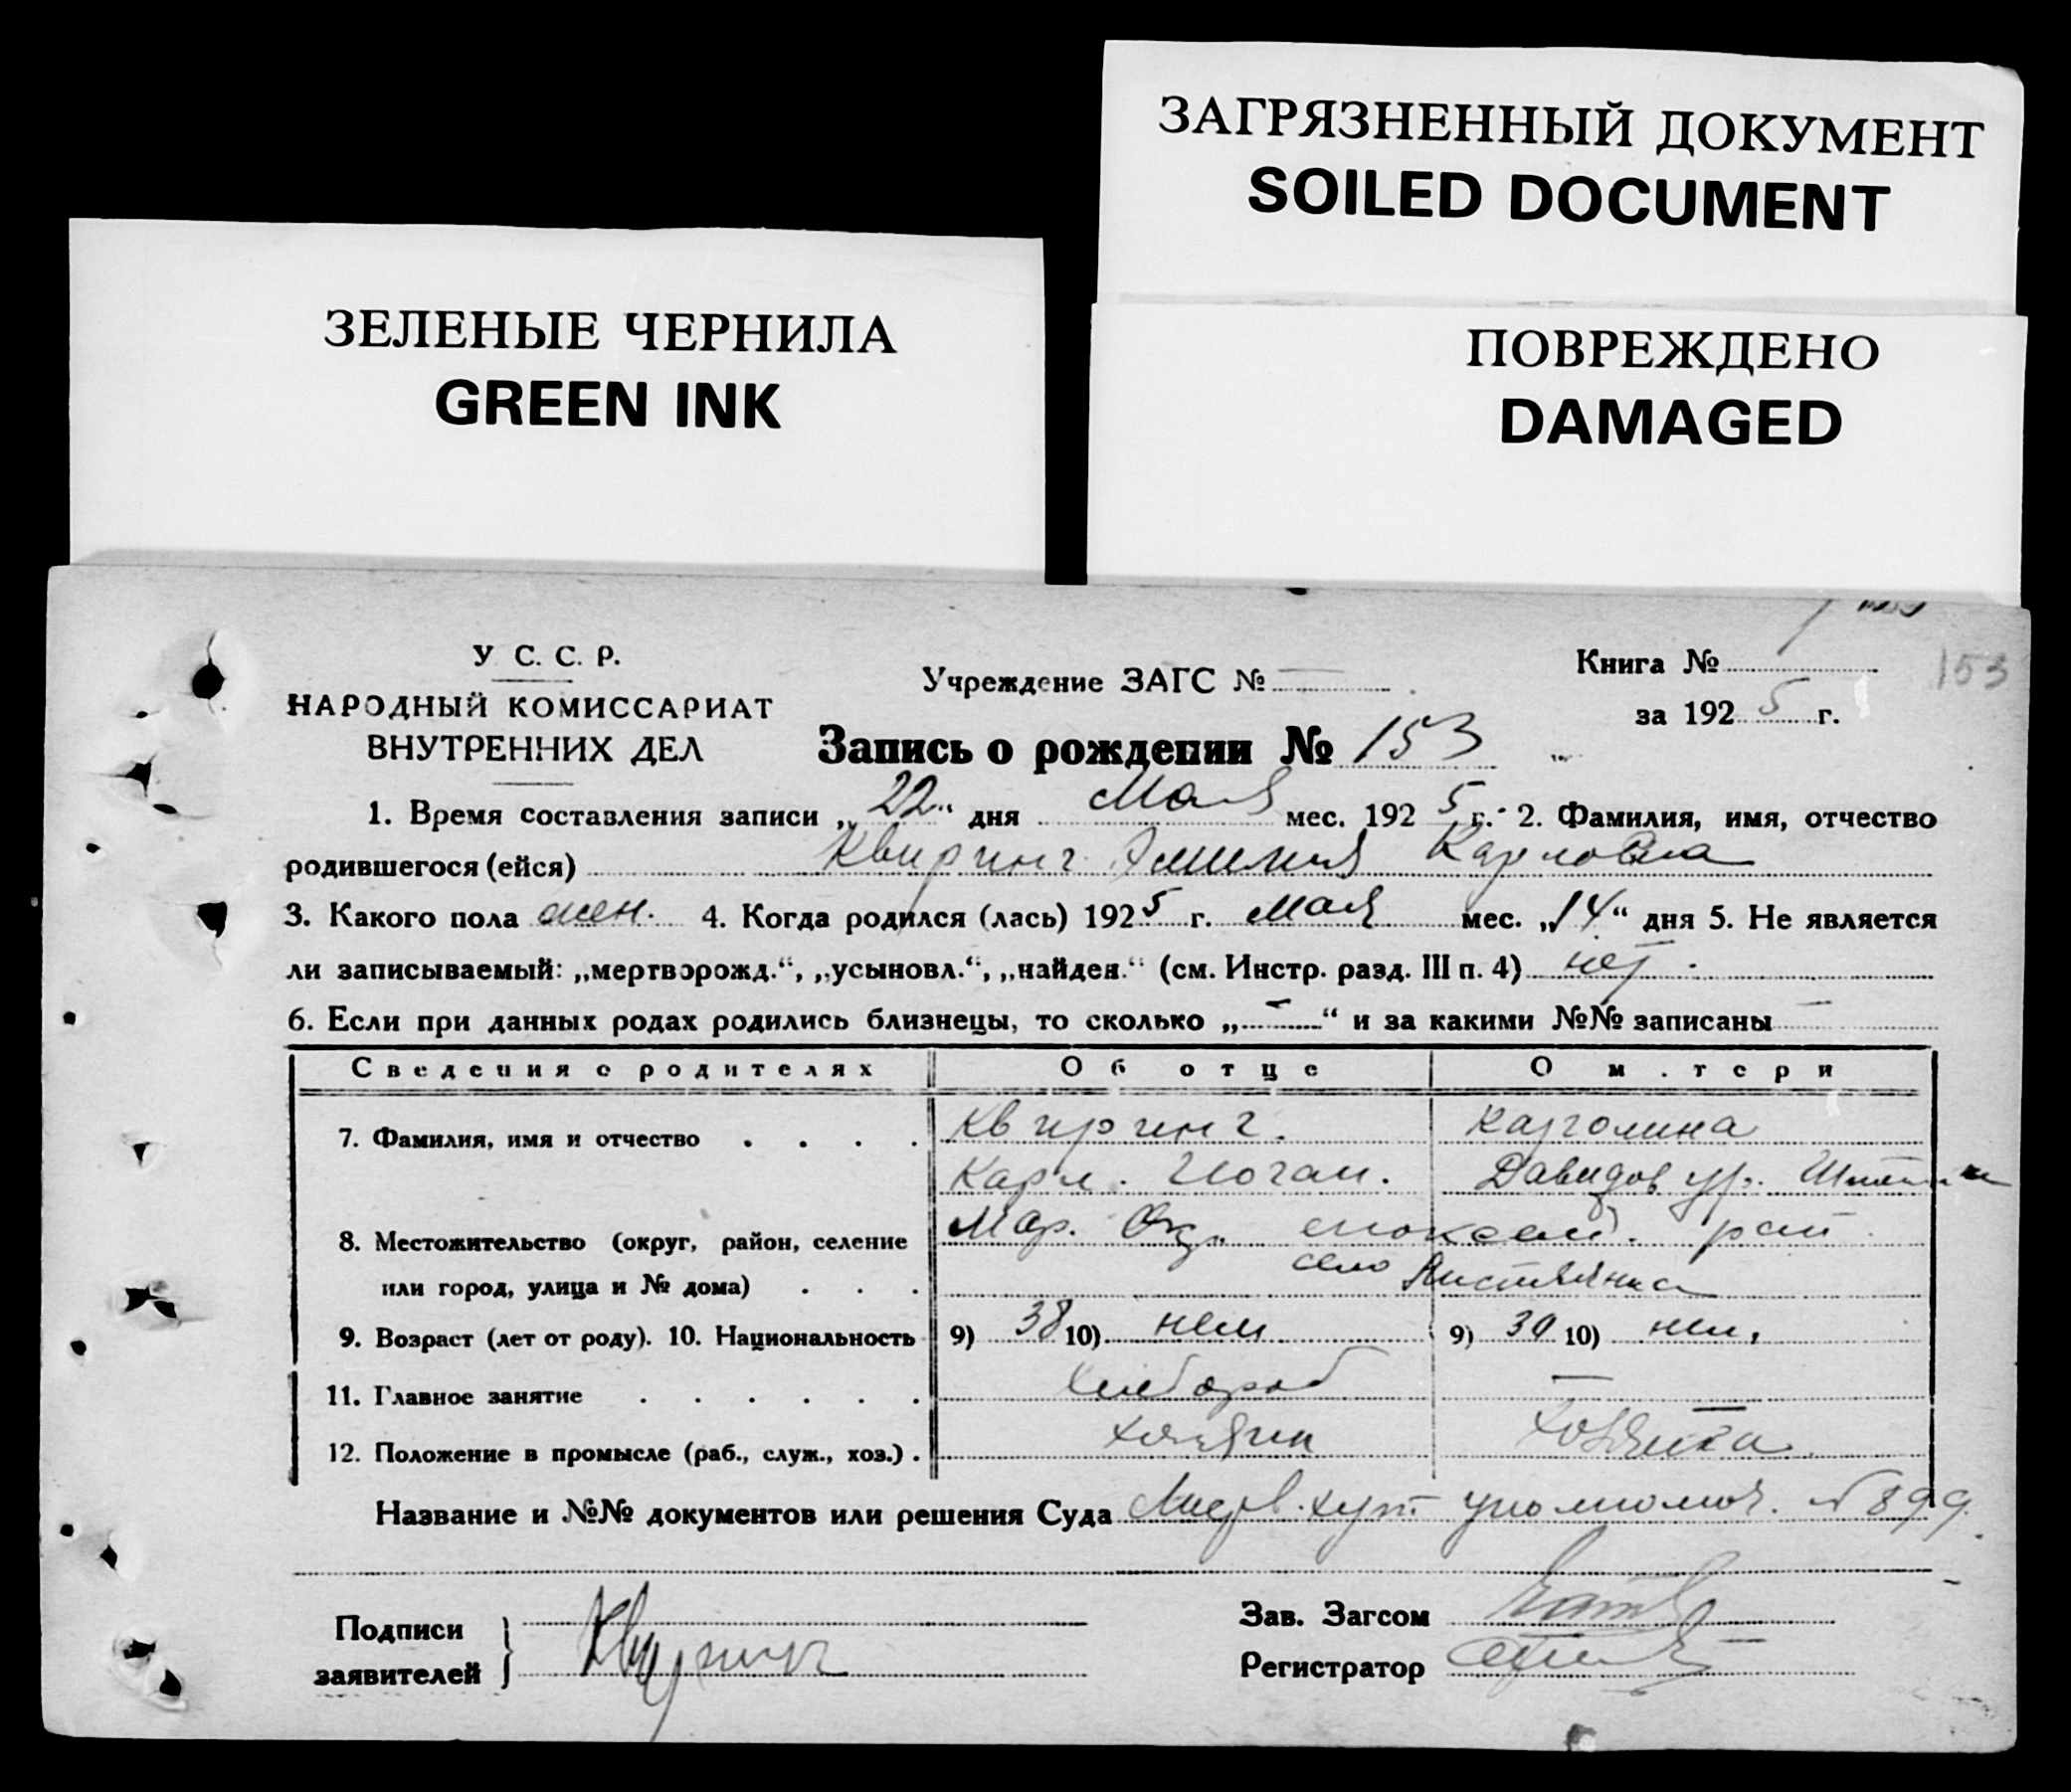 ЗАГРЯЗНЕННЫЙ ДОКУМЕНТ
SOILED DOCUMENT
ЗЕЛЕНЫЕ ЧЕРНИЛА
GREEN INK
ПОВРЕЖДЕНО
DAMAGED
У С. С. Р.
НАРОДНЫЙ КОМИССАРИАТ
ВНУТРЕННИХ ДЕЛ
Учреждение ЗАГС № —
Книга №
153
за 1925 г.
Запись о рождении № 153
1. Время составления записи „22“ дня Мая мес. 1925 г. 2. Фамилия, имя, отчество
родившегося (ейся) Квиринг Эмилия Карловна
3. Какого пола жен. 4. Когда родился (лась) 1925 г. Мая мес. „14“ дня 5. Не является
ли записываемый: „мертворожд.“, „усыновл.“, „найден.“ (см. Инстр. разд. III п. 4) нет.
6. Если при данных родах родились близнецы, то сколько „—“ и за какими №№ записаны —
Сведения о родителях Об отце О м.тери
7. Фамилия, имя и отчество . . . . Квиринг. Каролина
Карл. Иоган. Давидов ур.
8. Местожительство (округ, район, селение Мар. Окр. рай.
или город, улица и № дома) . . . село
9. Возраст (лет от роду). 10. Национальность 9) 38 10) нем 9) 30 10) нем.
11. Главное занятие . . . . . . Хлебороб —
12. Положение в промысле (раб., служ., хоз.) . хозяин хозяйка
Название и №№ документов или решения Суда хут. уполномоч. № 899.
Подписи
заявителей } Квиринг
Зав. Загсом
Регистратор